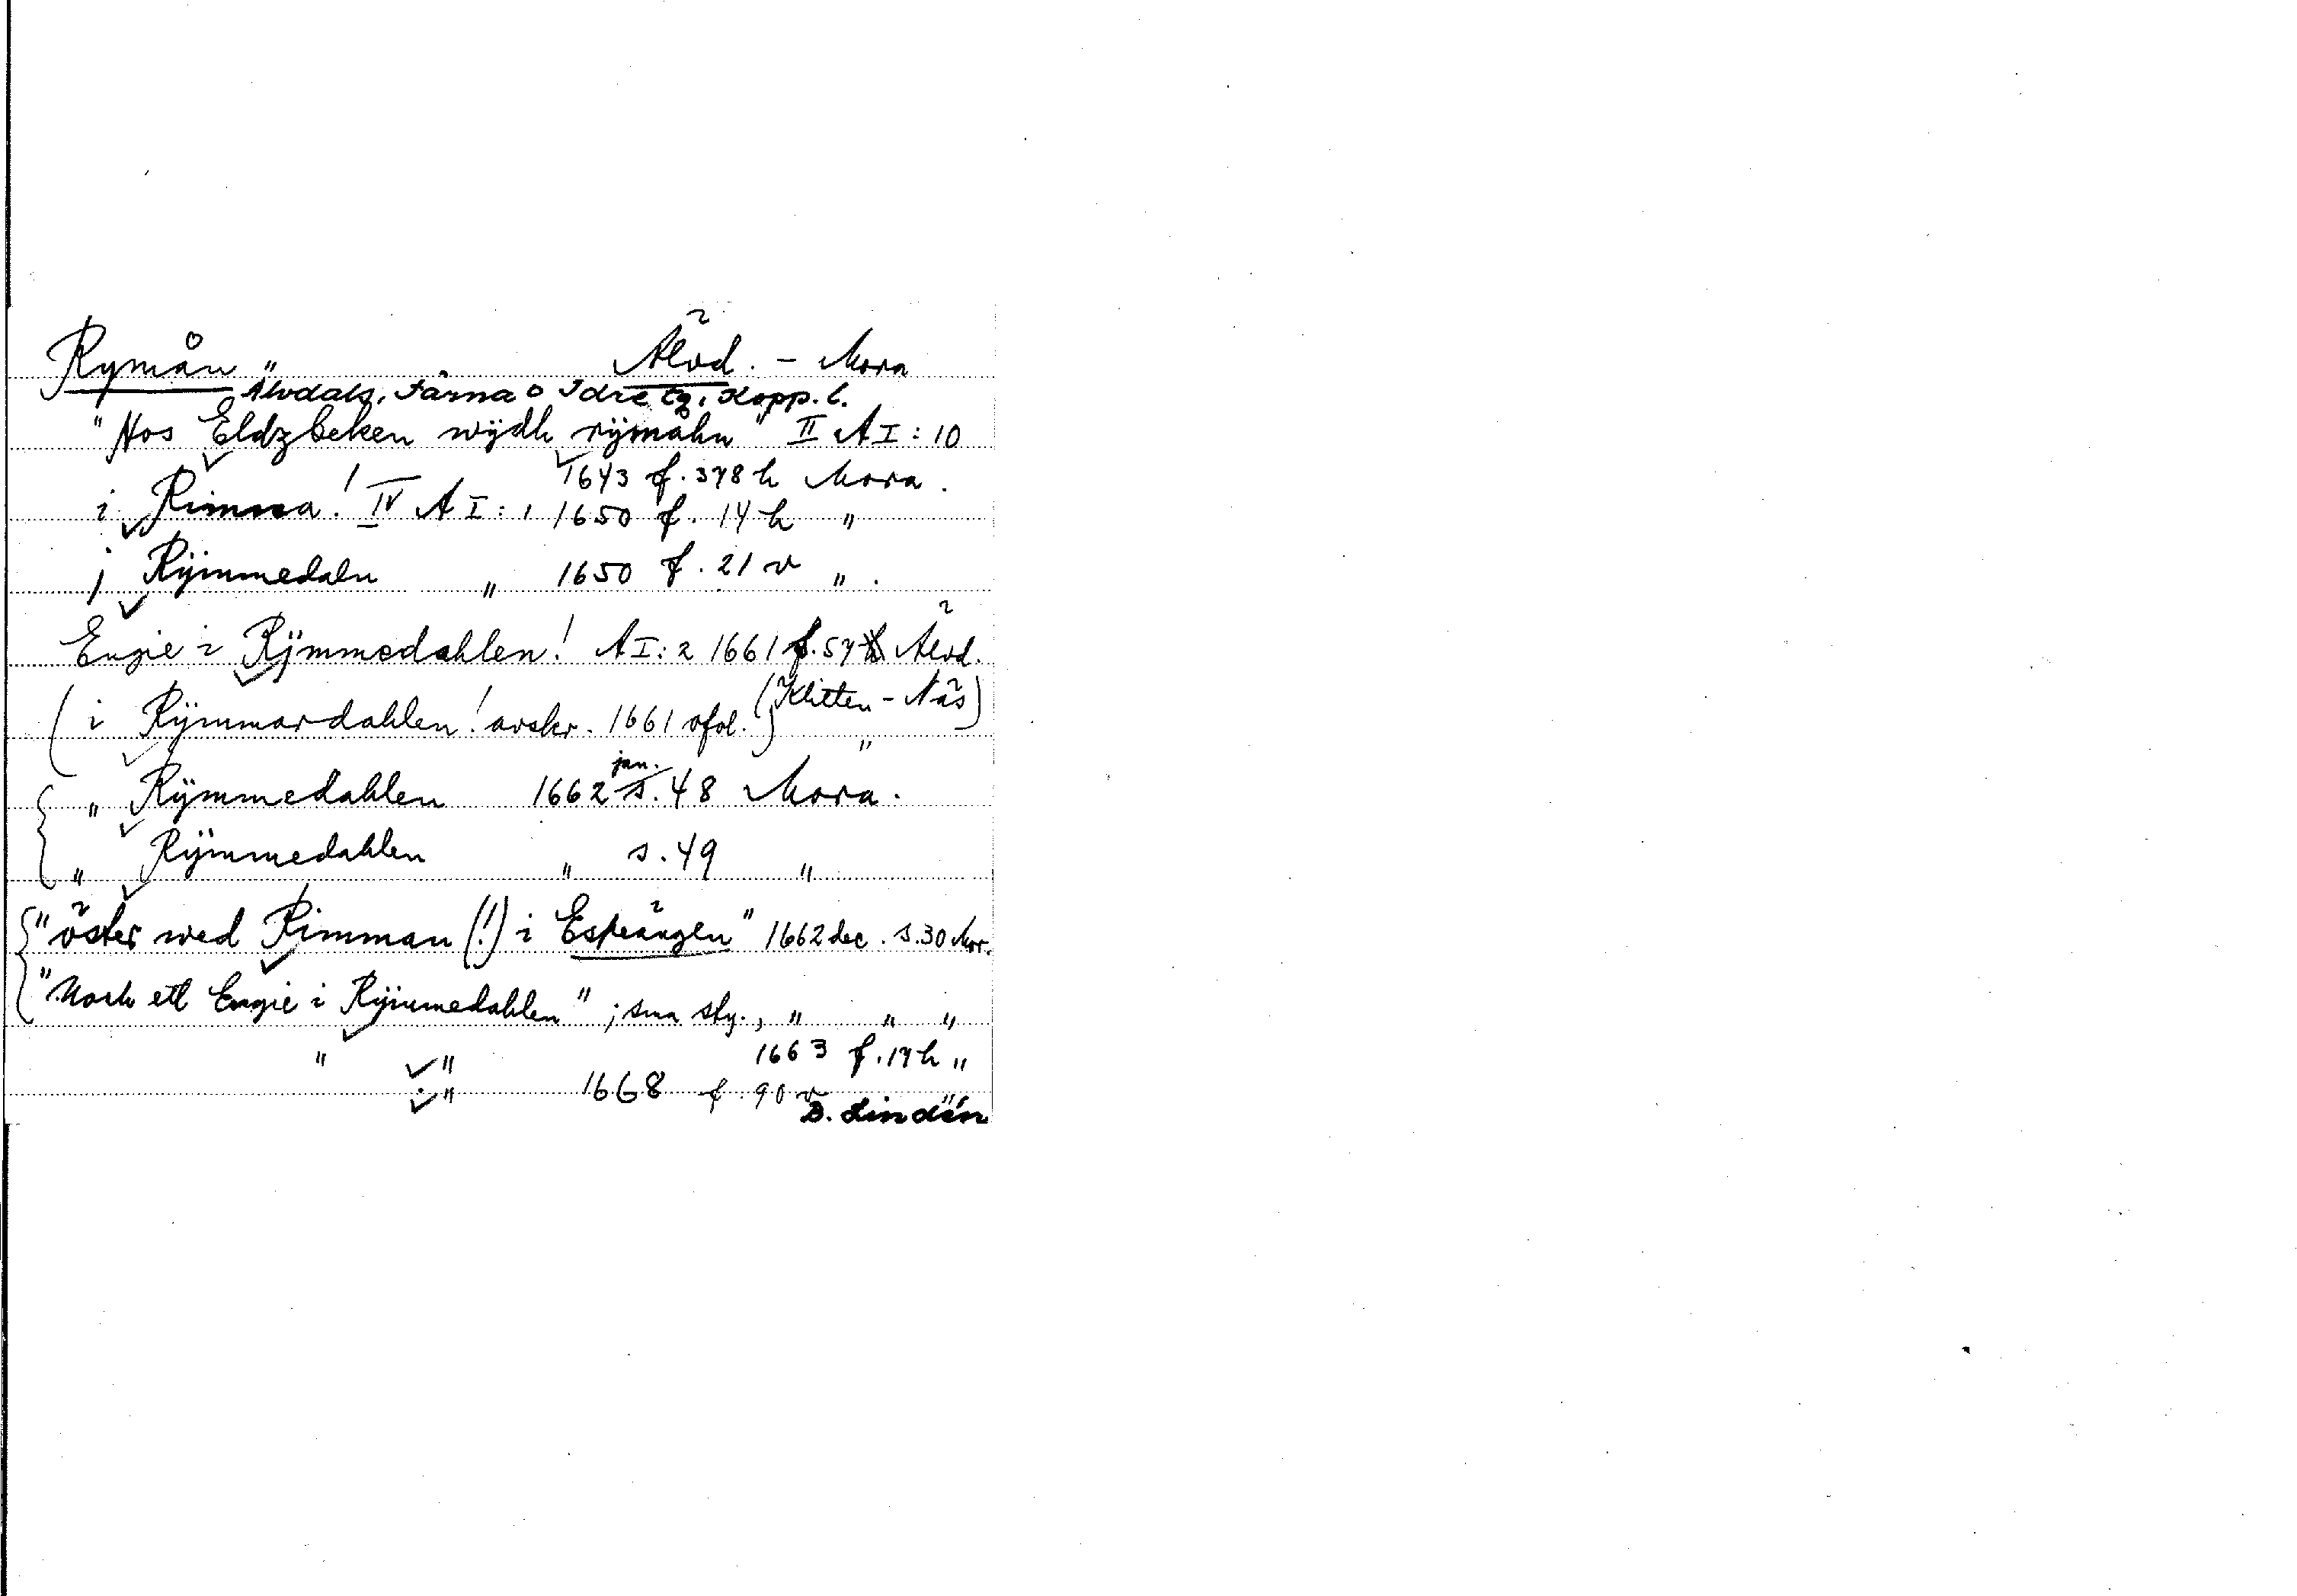 Rymån Älvd. – Mora
Älvdals, Särna o Idre tg, Kopp. l.
"Hos Eldzbeken wÿdh rÿmåhn" II A I : 10
1643 f. 378 h Mora.
i Rimma! IV A I : 1 1650 f. 14 h "
j Rÿmmedaln " 1650 f. 21 v ".
Engie i Rÿmmedahlen! A I : 2 1661 f. 57 Älvd.
(Klitten – Näs)
(i Rÿmmardahlen! avskr. 1661 ofol.) "
" Rÿmmedahlen 1662 jan. s. 48 Mora.
" Rÿmmedahlen " s. 49 "
"öster wed Rimman (!) i Espeängen" 1662 dec. s. 30 Mor.
"Noch ett Engie i Rÿmmedahlen"; sma stg., " " "
" " 1663 f. 17 h "
" 1668 f. 90 v
D. Lindén